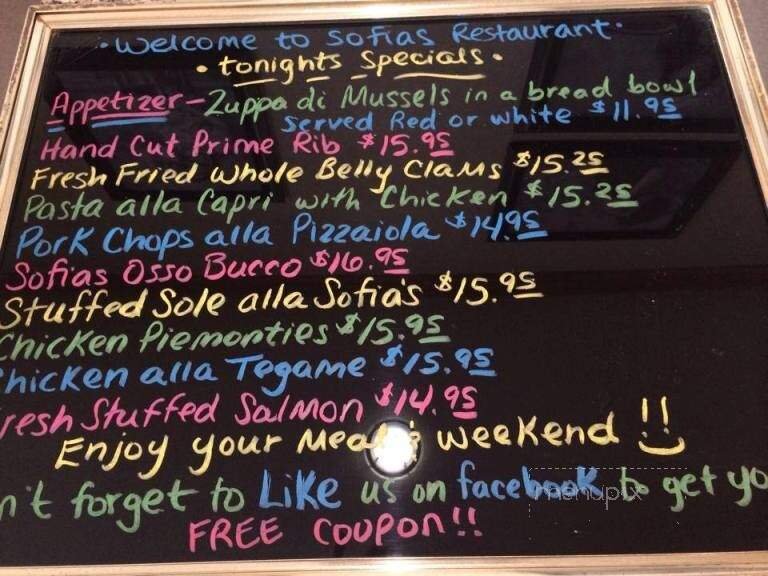 • Welcome to Sofias Restaurant •
• tonights Specials •
Appetizer - Zuppa di Mussels in a bread bowl
served Red or white $11.95
Hand Cut Prime Rib $15.95
Fresh Fried Whole Belly Clams $15.25
Pasta alla Capri with Chicken $15.25
Pork Chops alla Pizzaiola $14.95
Sofias Osso Bucco $16.95
Stuffed Sole alla Sofia's $15.95
Chicken Piemonties $15.95
hicken alla Tegame $15.95
resh Stuffed Salmon $14.95
Enjoy your Meal weekend !!
n't forget to Like us on facebook to get yo
menupix
FREE Coupon!!